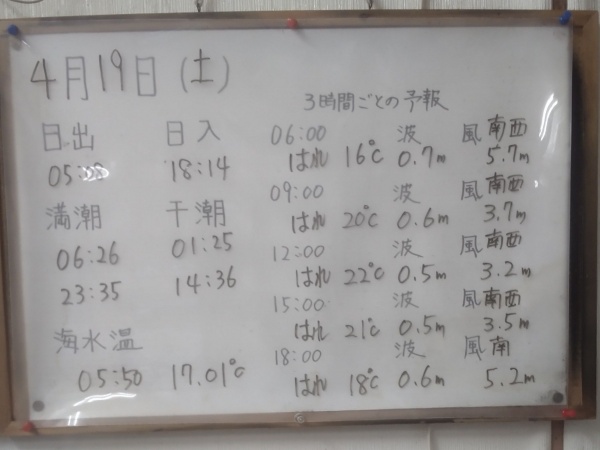 4月19日(土)
日出 日入
18:14
満潮 干潮
06:26 01:25
23:35 14:36
海水温
05:50 17.01°C
3時間ごとの予報
06:00 波 風 南西
はれ 16°C 0.7m 5.7m
09:00 波 風 南西
はれ 20°C 0.6m 3.7m
12:00 波 風 南西
はれ 22°C 0.5m 3.2m
15:00 波 風 南西
はれ 21°C 0.5m 3.5m
18:00 波 風 南
はれ 18°C 0.6m 5.2m